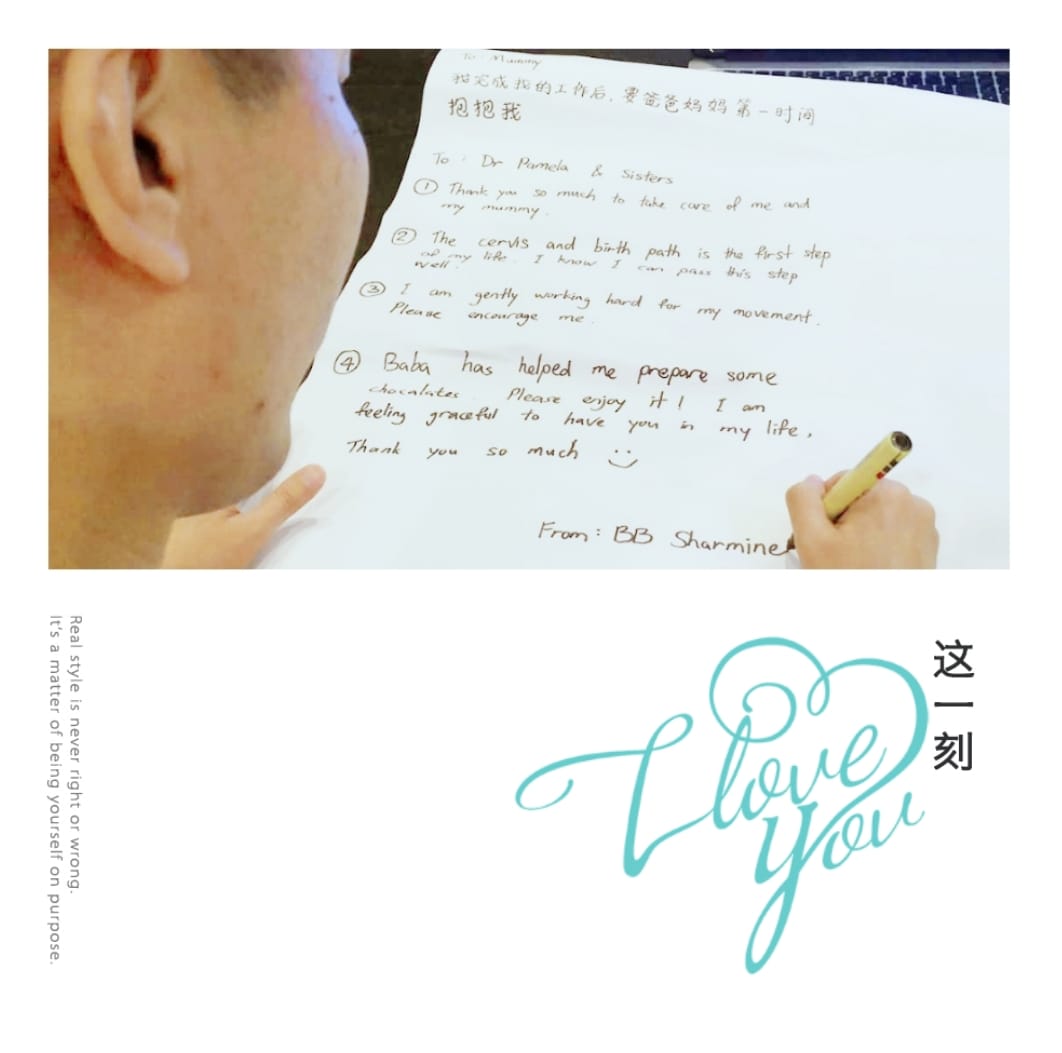 To : Mummy
我完成我的工作后，要爸爸妈妈第一时间
抱抱我
To : Dr Pamela & Sisters
① Thank you so much to take care of me and
my mummy.
② The cervis and birth path is the first step
of my life. I know I can pass this step
well.
③ I am gently working hard for my movement.
Please encourage me.
④ Baba has helped me prepare some
chocalates. Please enjoy it! I am
feeling graceful to have you in my life,
Thank you so much
From : BB Sharmine
这一刻
I love
you
Real style is never right or wrong.
It's a matter of being yourself on purpose.